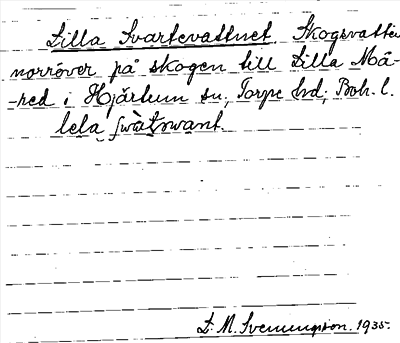 Lilla Svartevattnet. Skogsvatten
norröver på skogen till Lilla Må-
-red i Hjärtum sn, Torpe hd, Boh. l.
lela swatəwant.
S. M. Svenungson. 1935.